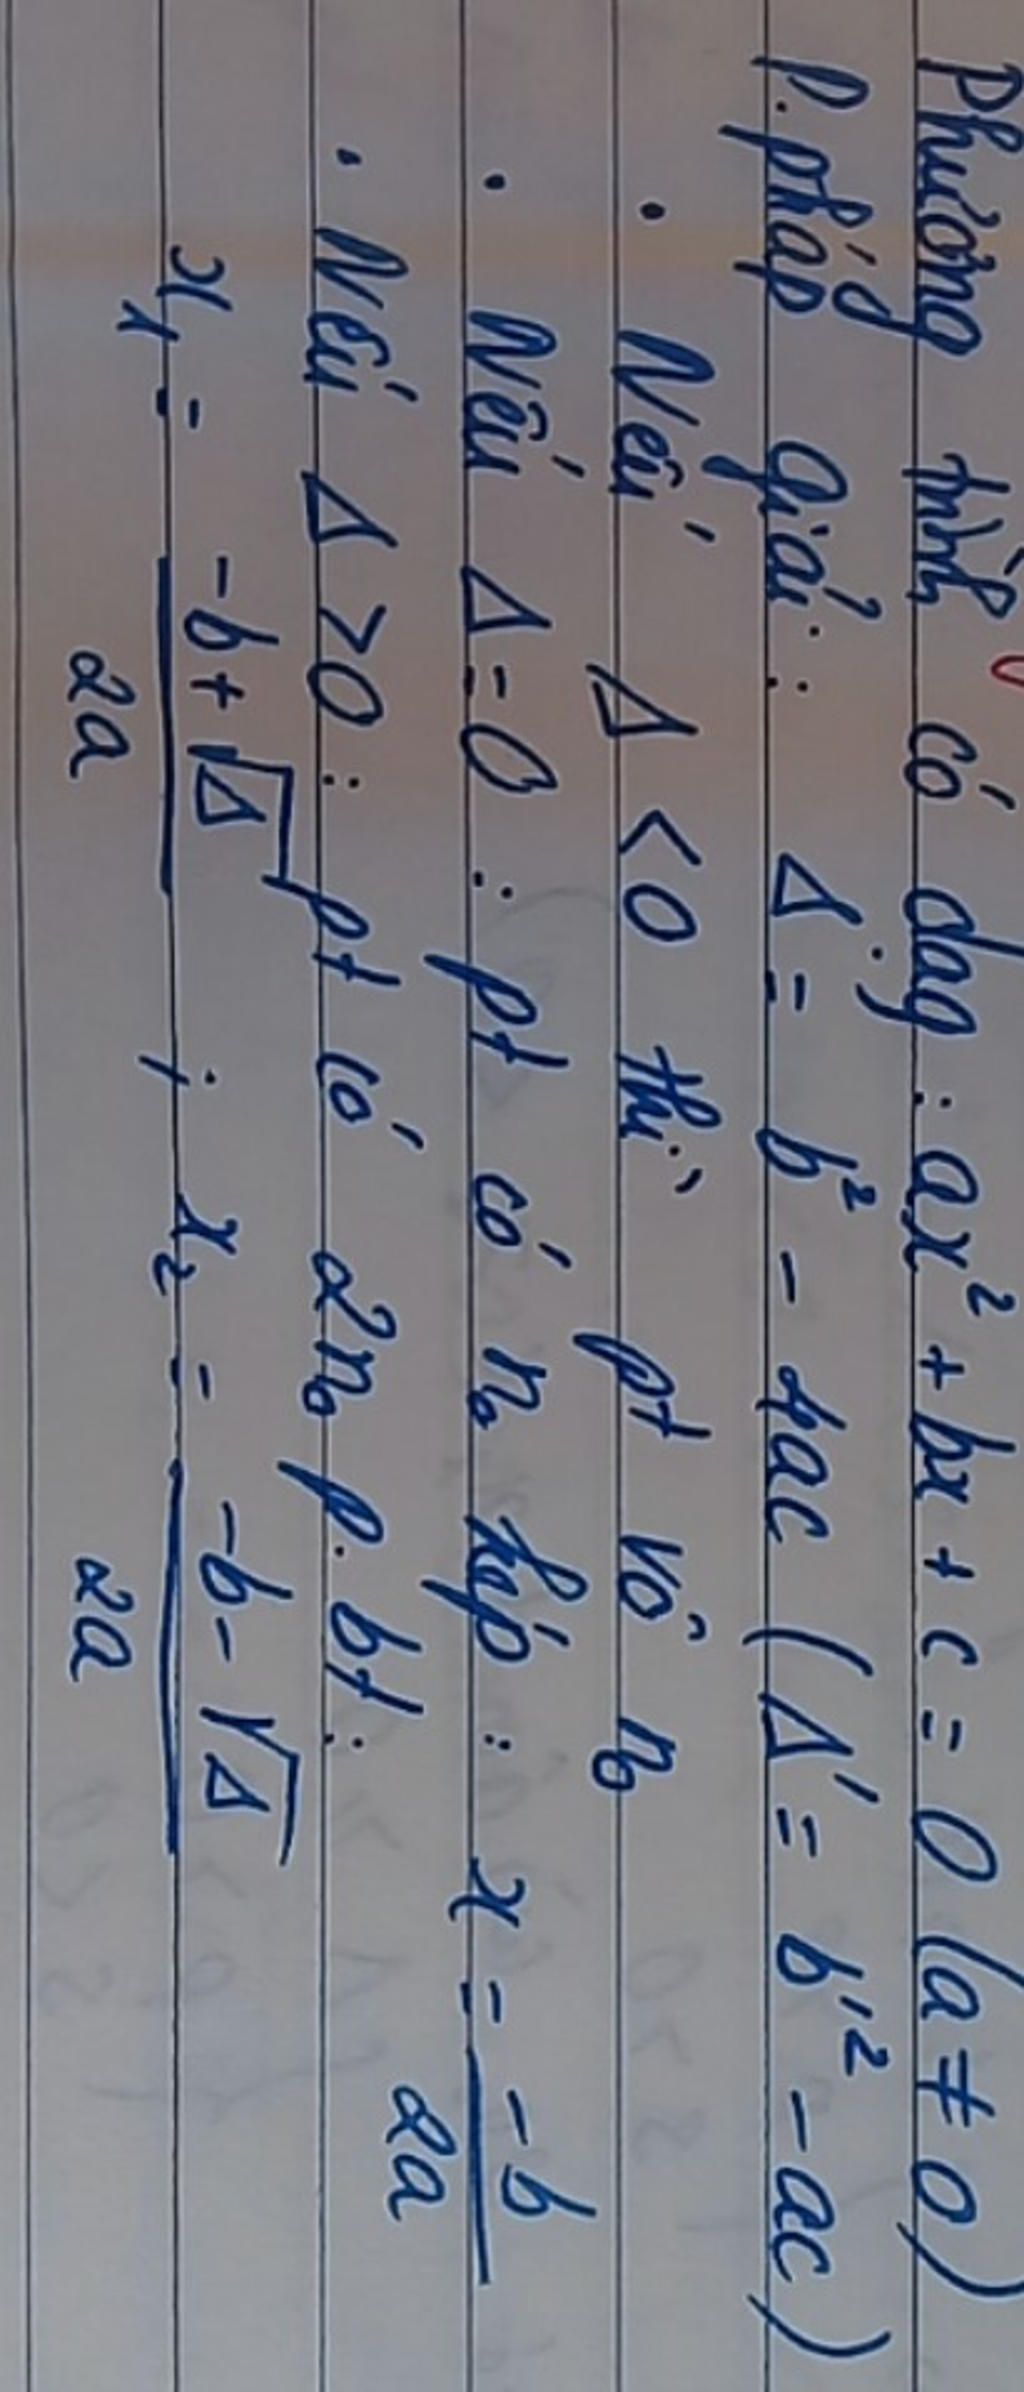 Phương trình có dạg : ax² + bx + c = 0 (a ≠ 0)
P. pháp giải : Δ = b² - 4ac (Δ' = b'² - ac)
• Nếu Δ < 0 thì pt vô n₀
• Nếu Δ = 0 : pt có n₀ kép : x = -b/2a
• Nếu Δ > 0 : pt có 2n₀ p. bt :
x₁ = -b + √Δ/2a ; x₂ = -b - √Δ/2a